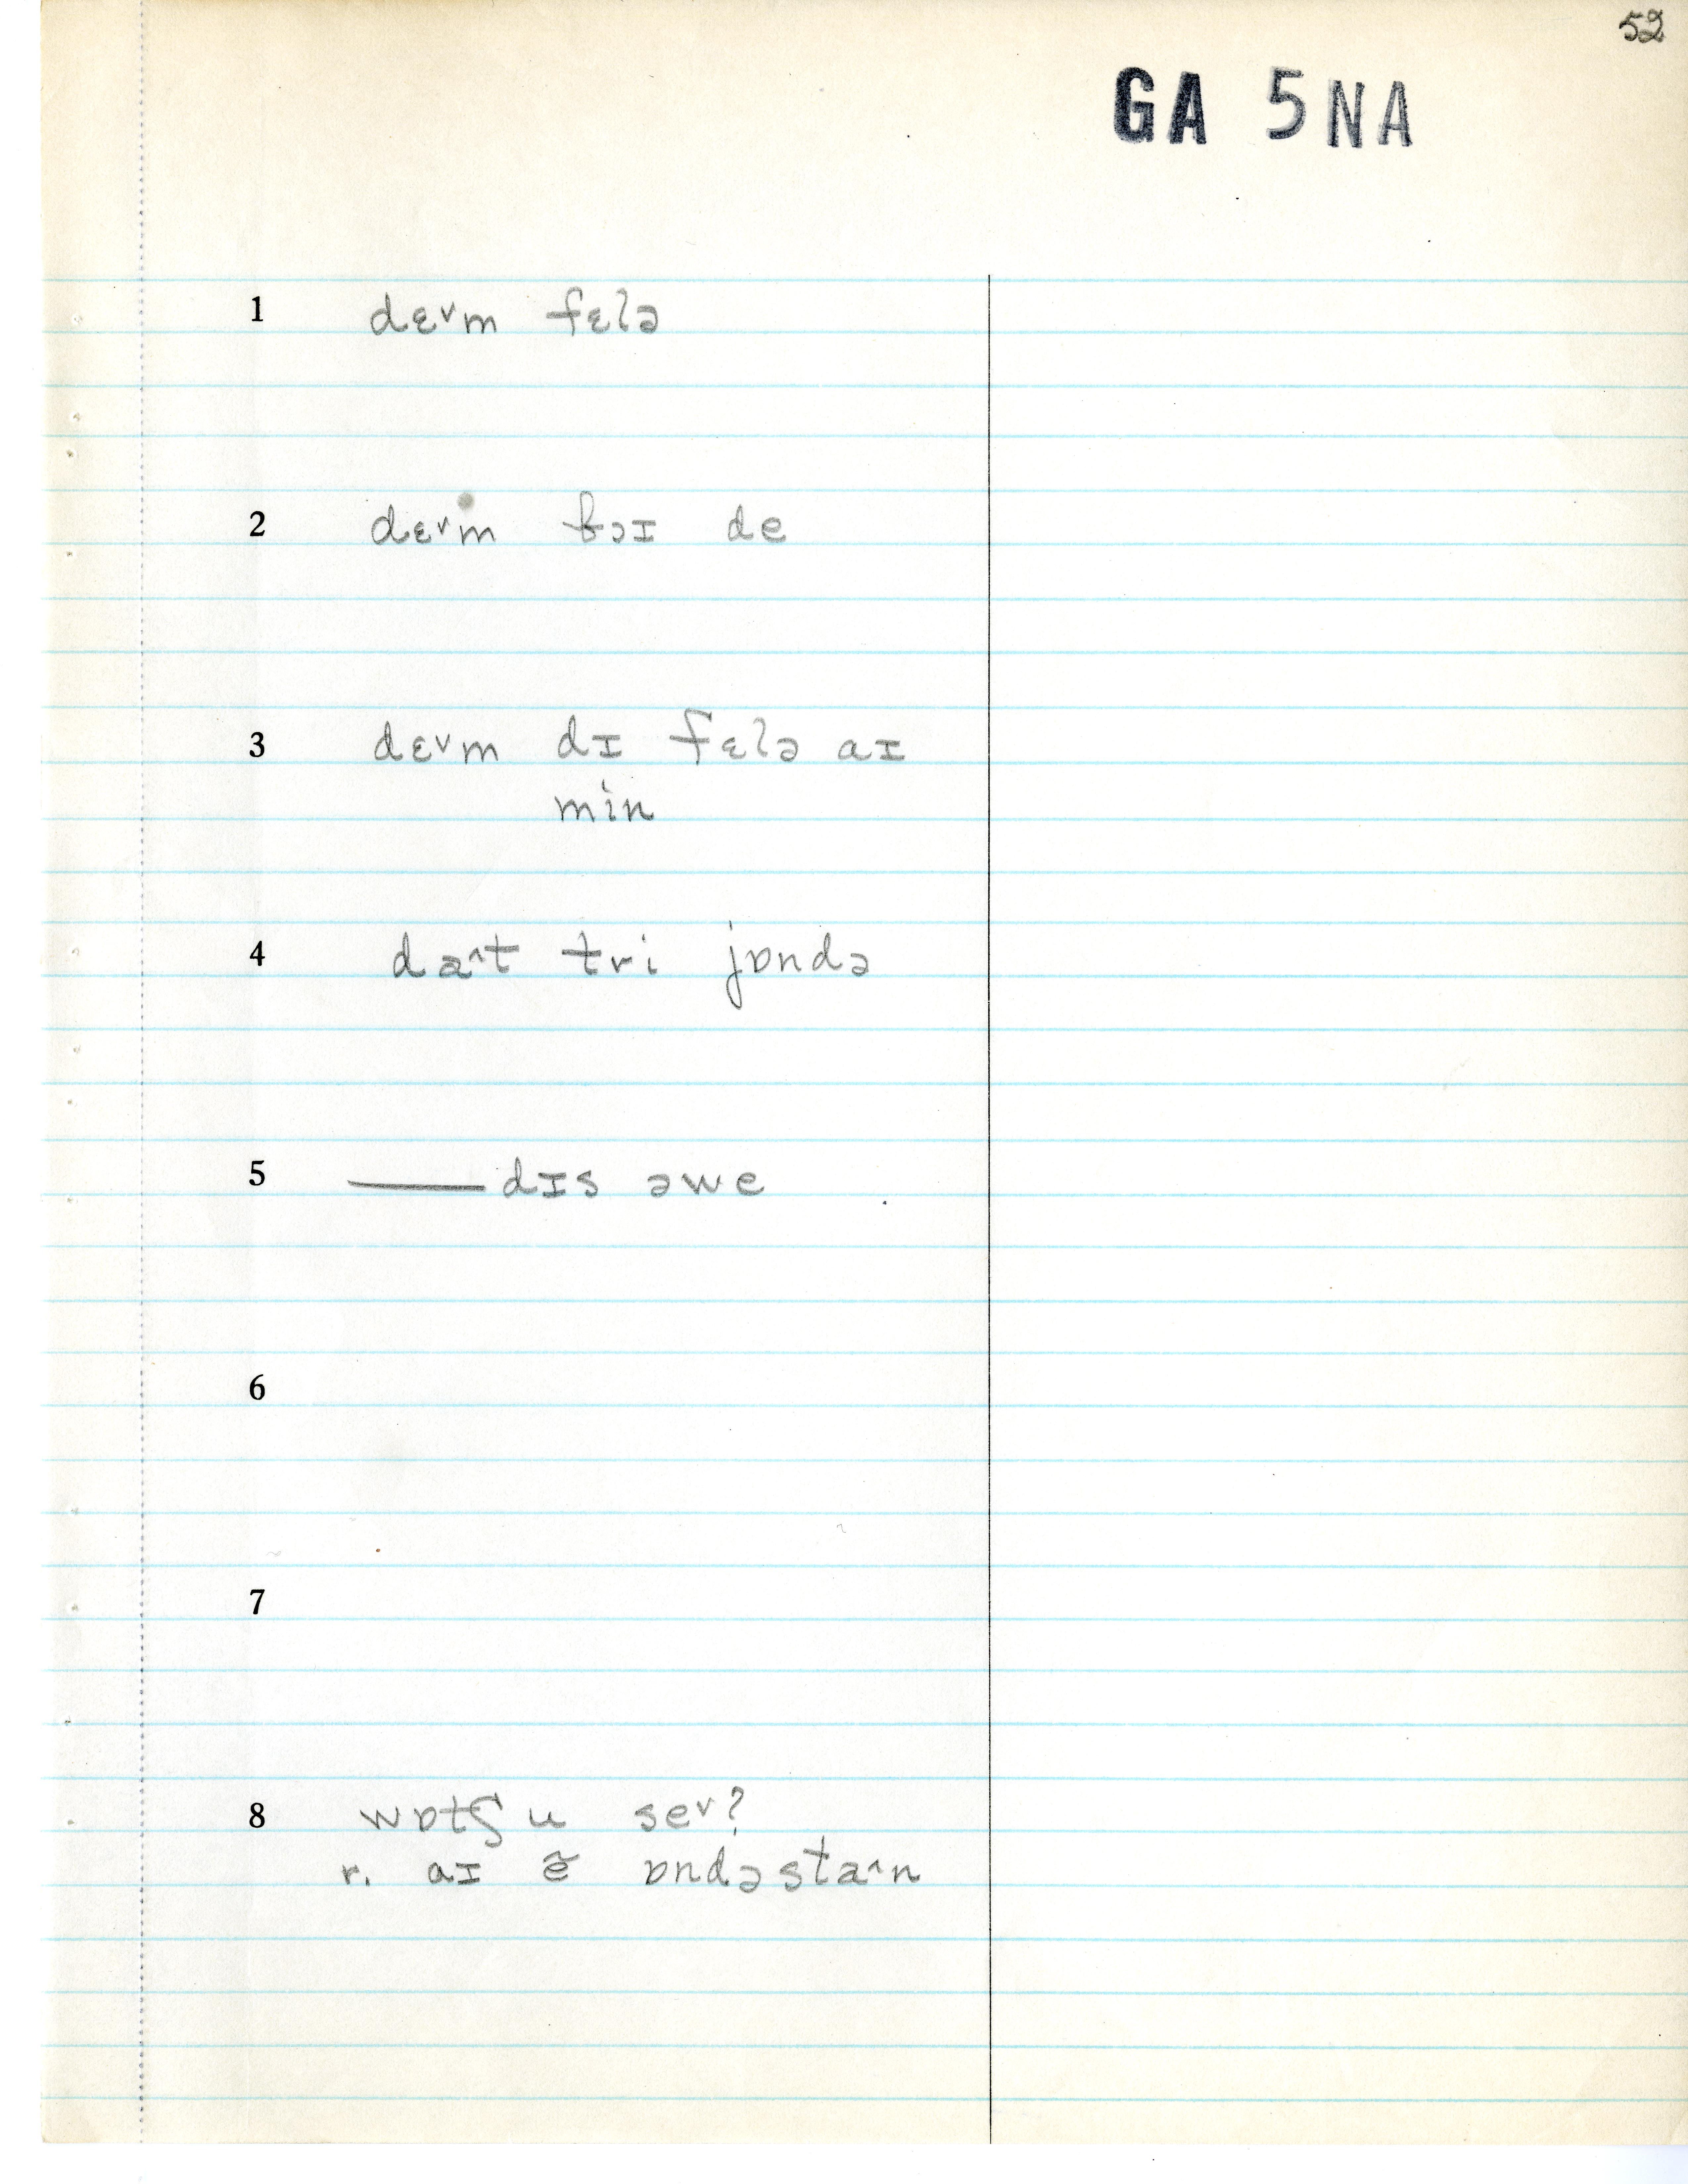 52
GA 5NA
1 dɛ˅m fɛlə
2 dɛ˅m bɔɪ de
3 dɛ˅m dɪ fɛlə aɪ
min
4 da˄t tri jɒndə
5 —— dɪs əwe
6
7
8 wɒtʃ u se˅?
r. aɪ ẽ ɒndəsta˄n